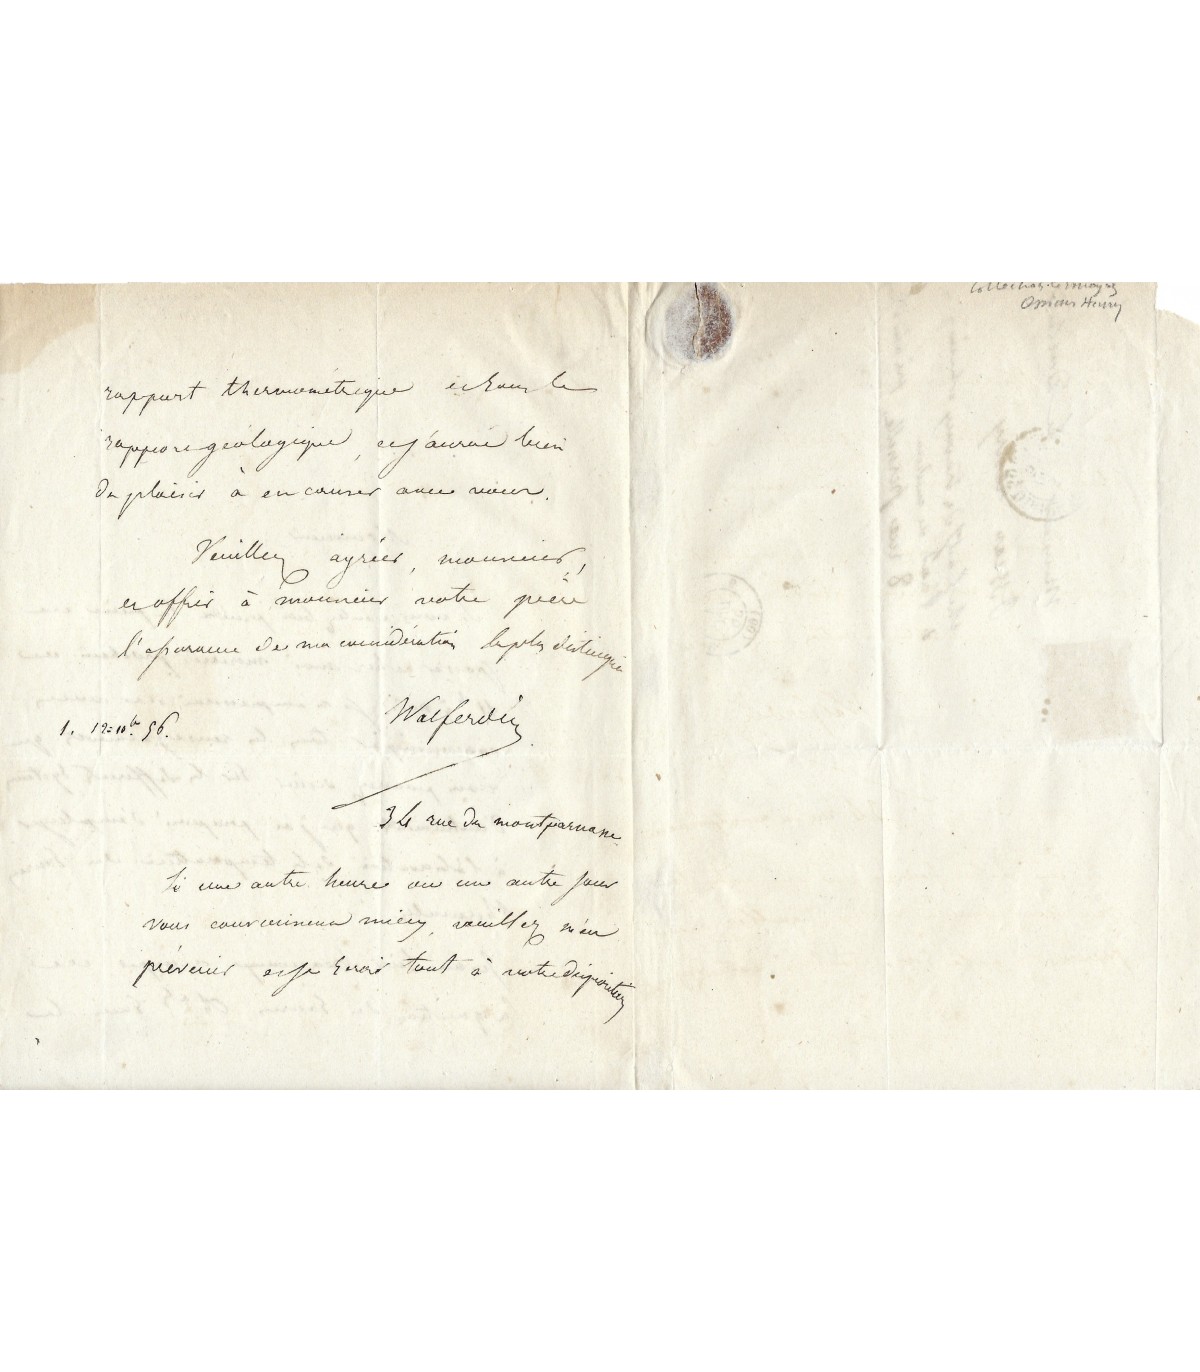 rapport thermométrique et sous le
rapport géologique, et j'aurai bien
du plaisir à en causer avec vous.
Veuillez agréer, monsieur,
et offrir à monsieur votre père
l'assurance de ma considération la plus distinguée
Walferdin
1. 12 = 10bre 56.
34 rue du montparnasse
Si une autre heure ou un autre jour
vous convenait mieux, veuillez m'en
prévenir et je serais tout à votre disposition
Henry